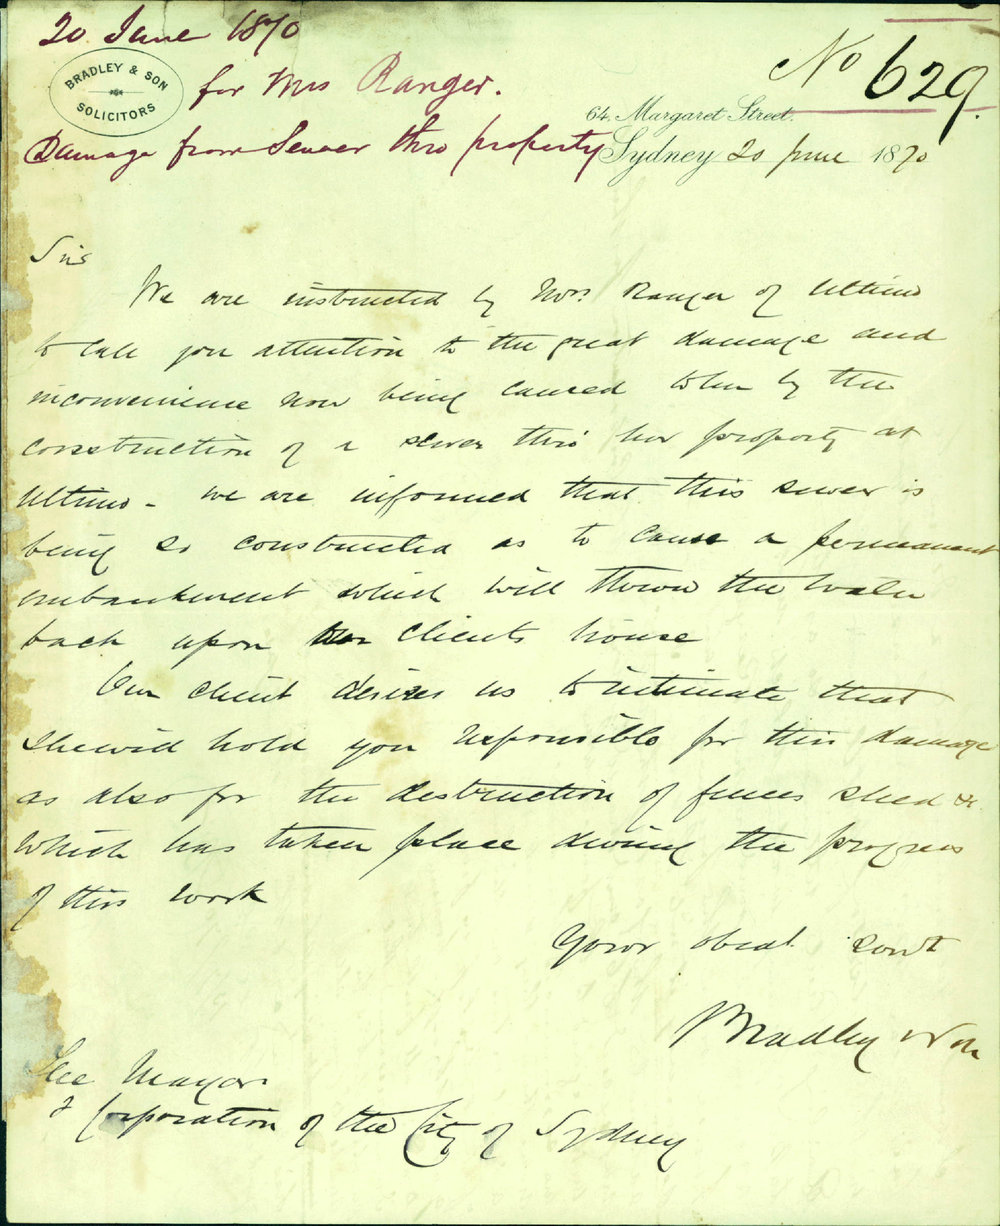 20 June 1870
BRADLEY & SON
SOLICITORS
for Mrs Ranger.
Damage from Sewer thro property
No 629.
64, Margaret Street.
Sydney 20 June 1870
Sir
We are instructed by Mrs. Ranger of Ultimo
to call you attention to the great damage and
inconvenience now being caused to her by the
construction of a sewer thro' her property at
Ultimo - we are informed that this sewer is
being so constructed as to cause a permanent
embankment which will throw the water
back upon our clients house
Our client desires us to intimate that
she will hold you responsible for this damage
as also for the destruction of fences shed &c.
which has taken place during the progress
of this work
Your obedt. servt
Bradley & Son
The Mayor
& Corporation of the City of Sydney